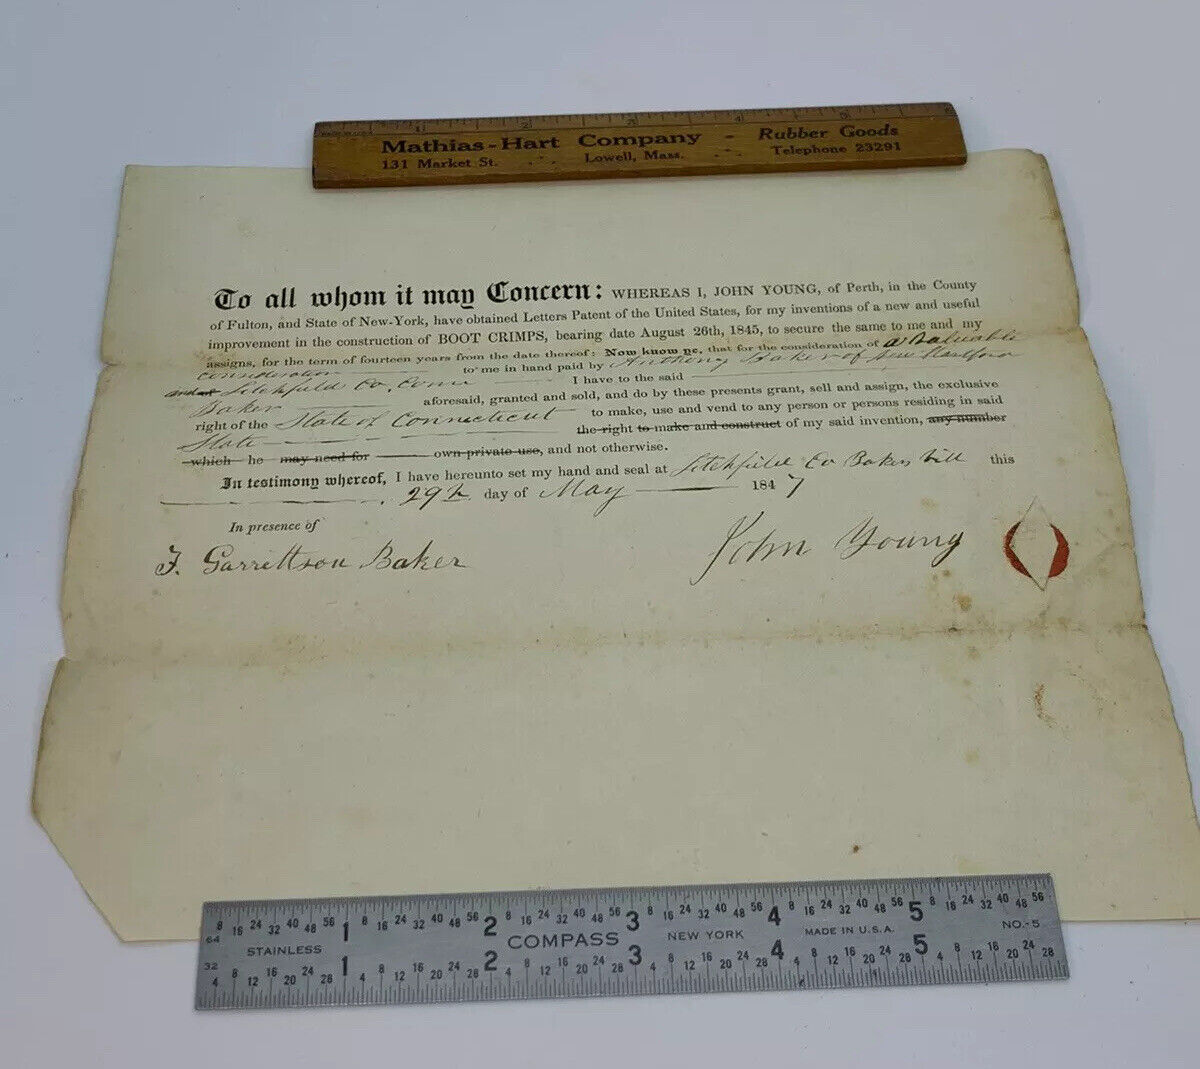 Mathias-Hart Company - Rubber Goods
131 Market St. Lowell, Mass. Telephone 23291
To all whom it may Concern: WHEREAS I, JOHN YOUNG, of Perth, in the County
of Fulton, and State of New-York, have obtained Letters Patent of the United States, for my inventions of a new and useful
improvement in the construction of BOOT CRIMPS, bearing date August 26th, 1845, to secure the same to me and my
assigns, for the term of fourteen years from the date thereof: Now know ye, that for the consideration of a valuable
consideration to me in hand paid by Anthony Baker of New Hartford
Litchfield Co, Conn I have to the said
Baker aforesaid, granted and sold, and do by these presents grant, sell and assign, the exclusive
right of the State of Connecticut to make, use and vend to any person or persons residing in said
State the right to make and construct of my said invention, any number
which he may need for own private use, and not otherwise.
In testimony whereof, I have hereunto set my hand and seal at Litchfield Co Bakersvill this
29th day of May 1847
In presence of
F. Garrettson Baker John Young
8 16 24 32 40 48 56 1 8 16 24 32 40 48 56 2 8 16 24 32 40 48 56 3 8 16 24 32 40 48 56 4 8 16 24 32 40 48 56 5 8 16 24 32 40 48 56
64 STAINLESS COMPASS NEW YORK MADE IN U.S.A. NO.-5
32 4 8 12 16 20 24 28 1 4 8 12 16 20 24 28 2 4 8 12 16 20 24 28 3 4 8 12 16 20 24 28 4 4 8 12 16 20 24 28 5 4 8 12 16 20 24 28